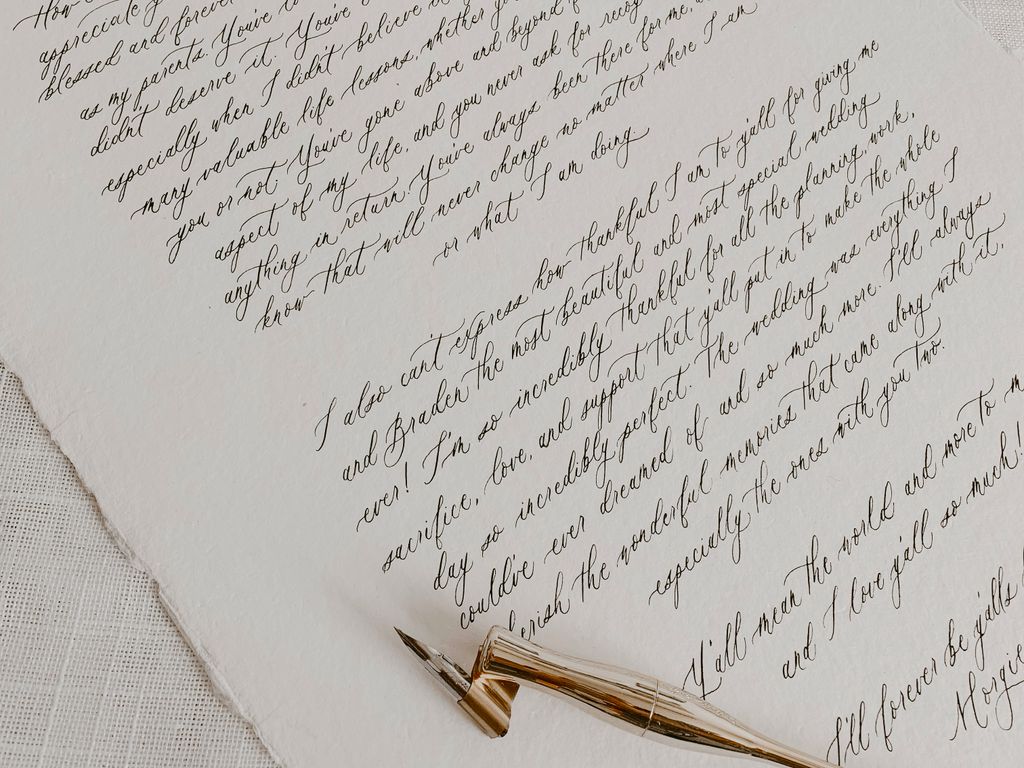 How
appreciate
blessed and forever
as my parents. You've
didn't deserve it. You've
especially when I didn't believe
many valuable life lessons, whether yo
you or not. You've gone above and beyond
aspect of my life, and you never ask for recog
anything in return. You've always been there for me,
know that will never change no matter where I am
or what I am doing.
I also can't express how thankful I am to y'all for giving me
and Braden the most beautiful and most special wedding
ever! I'm so incredibly thankful for all the planning, work,
sacrifice, love, and support that y'all put in to make the whole
day so incredibly perfect. The wedding was everything I
could've ever dreamed of and so much more. I'll always
erish the wonderful memories that came along with it,
especially the ones with you two.
Y'all mean the world and more to m
and I love y'all so much!
I'll forever be y'alls
Morgie